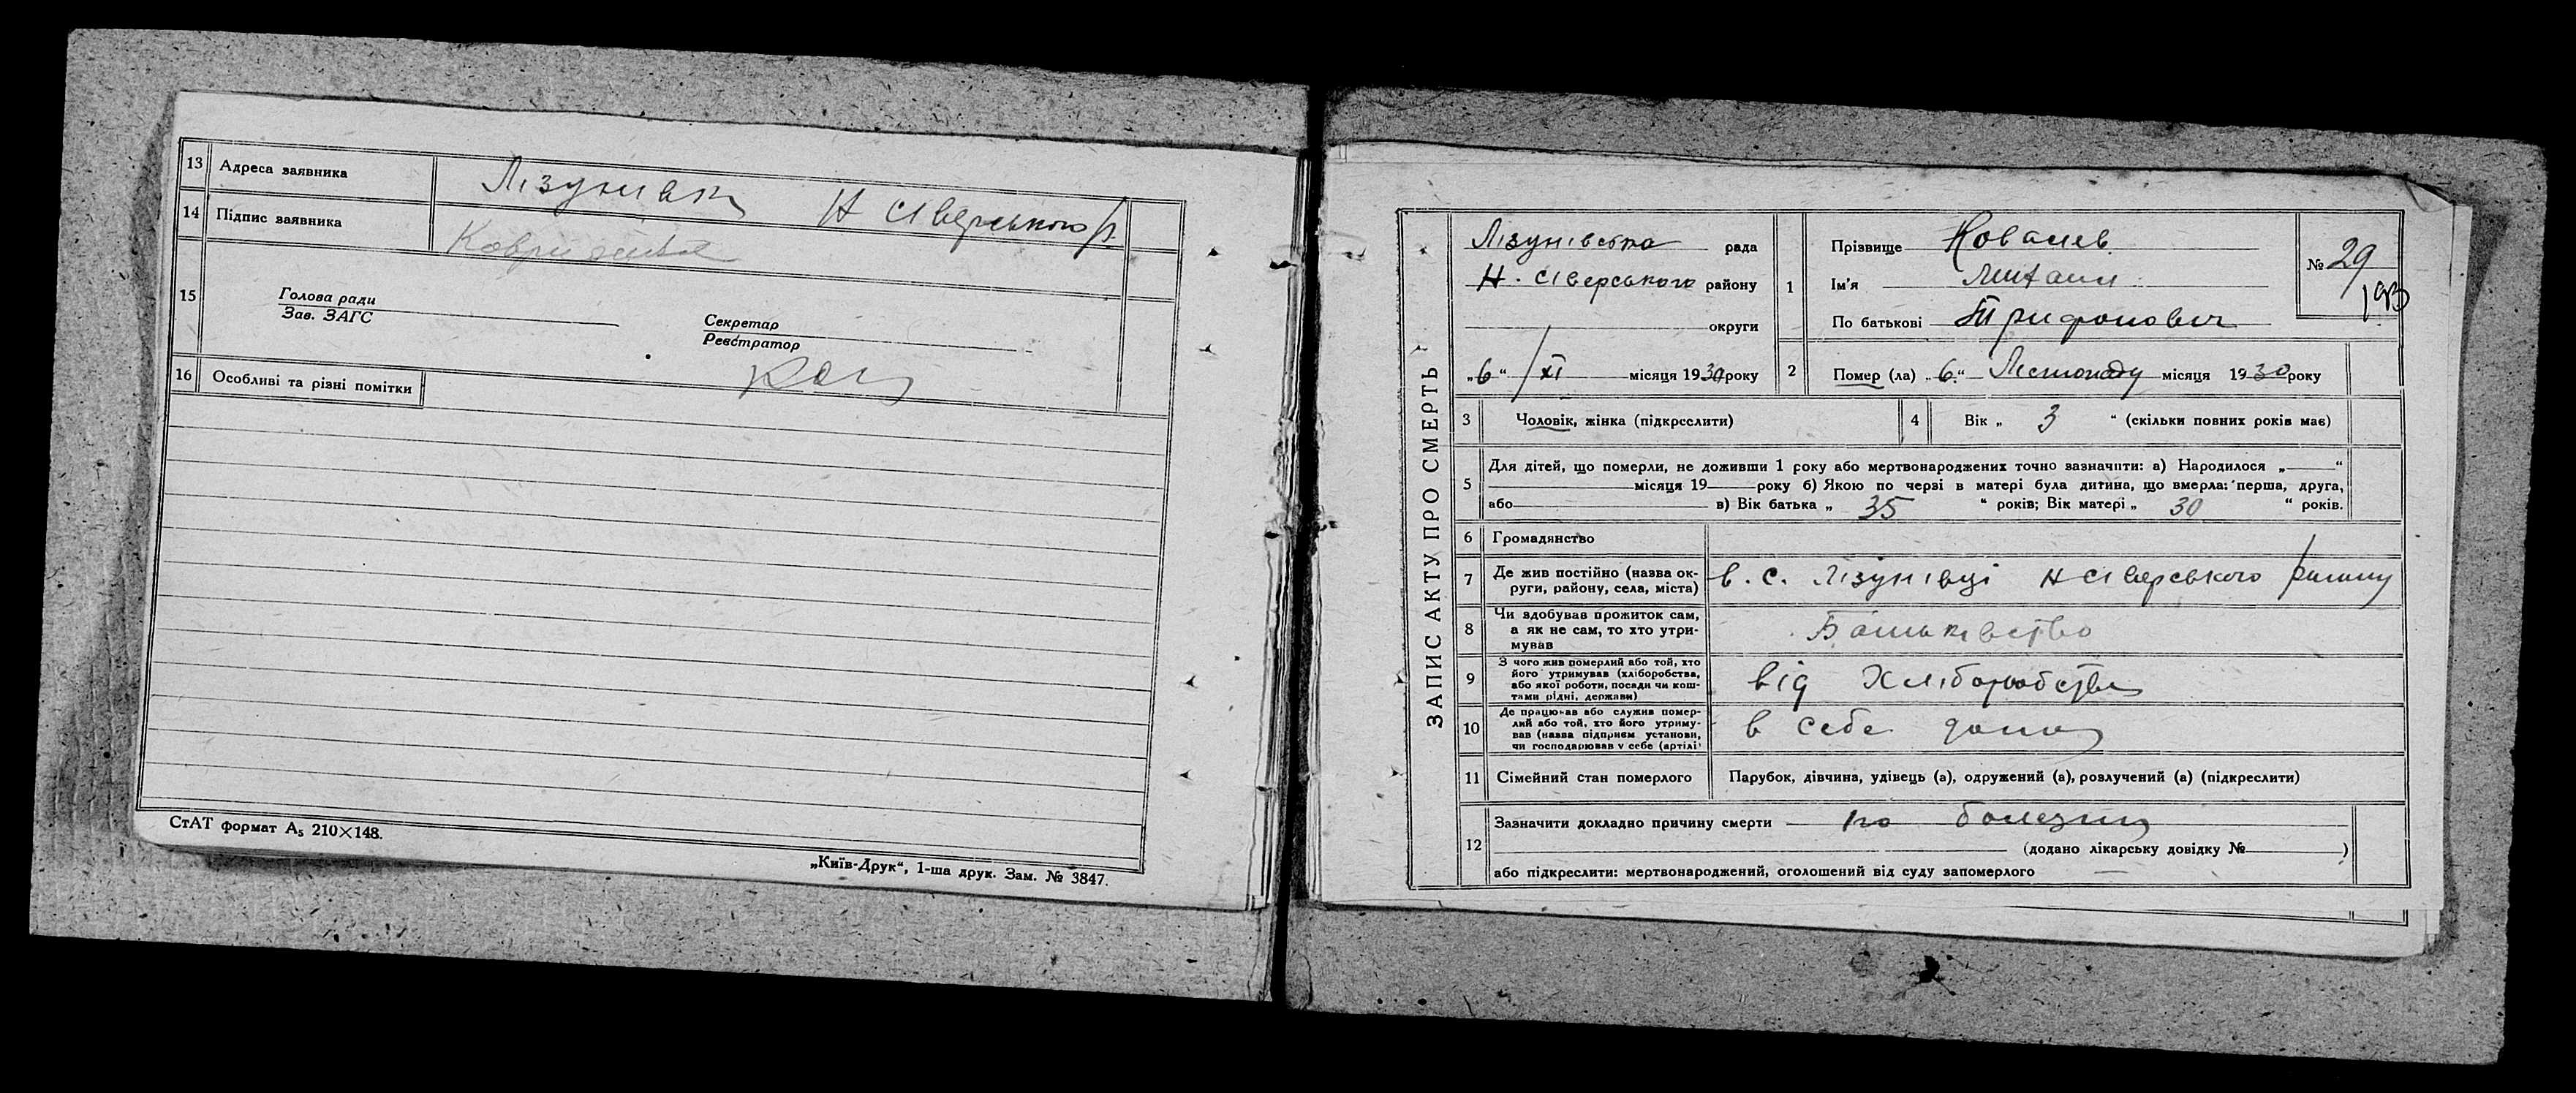 13 Адреса заявника Лізунівк Н Сіверського р.
14 Підпис заявника
15 Голова ради
Зав. ЗАГС
Секретар
Реєстратор
16 Особливі та різні помітки
СтАТ формат А₅ 210×148.
„Київ-Друк“, 1-ша друк. Зам. № 3847.
ЗАПИС АКТУ ПРО СМЕРТЬ
Лізунівська рада
Н. Сіверського району
округи
„6“ / XI місяця 1930 року
1 Прізвище Ковалев
Ім'я Михаил
По батькові Трифонович
№ 29
193
2 Помер (ла) „6“ Листопаду місяця 1930 року
3 Чоловік, жінка (підкреслити)
4 Вік „ 3 “ (скільки повних років має)
5 Для дітей, що померли, не доживши 1 року або мертвонароджених точно зазначити: а) Народилося „ “
місяця 19 року б) Якою по черзі в матері була дитина, що вмерла: перша, друга,
або в) Вік батька „ 35 “ років; Вік матері „ 30 “ років.
6 Громадянство
7 Де жив постійно (назва ок-
руги, району, села, міста) в. с. Лізунівці Н Сіверського району
8 Чи здобував прожиток сам,
а як не сам, то хто утри-
мував Батьківство
9 З чого жив померлий або той, хто
його утримував (хліборобства,
або якої роботи, посади чи кош-
тами рідні, держави) від Хліборобства
10 Де працював або служив помер-
лий або той, хто його утриму-
вав (назва підприєм установи,
чи господарював у себе (артілі) в себе дома
11 Сімейний стан померлого Парубок, дівчина, удівець (а), одружений (а), розлучений (а) (підкреслити)
12 Зазначити докладно причину смерти по болезни
(додано лікарську довідку № )
або підкреслити: мертвонароджений, оголошений від суду запомерлого